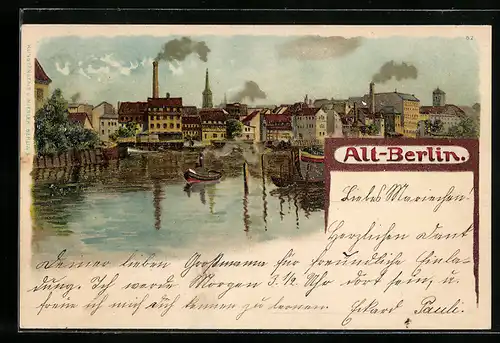 52
Alt-Berlin.
Liebes Mariechen!
Herzlichen Dank
Deiner lieben Großmama für freundliche Einla-
dung. Ich werde Morgen 3.½ Uhr dort sein, u.
freue ich mich auch kennen zu lernen. Eckard Pauli.